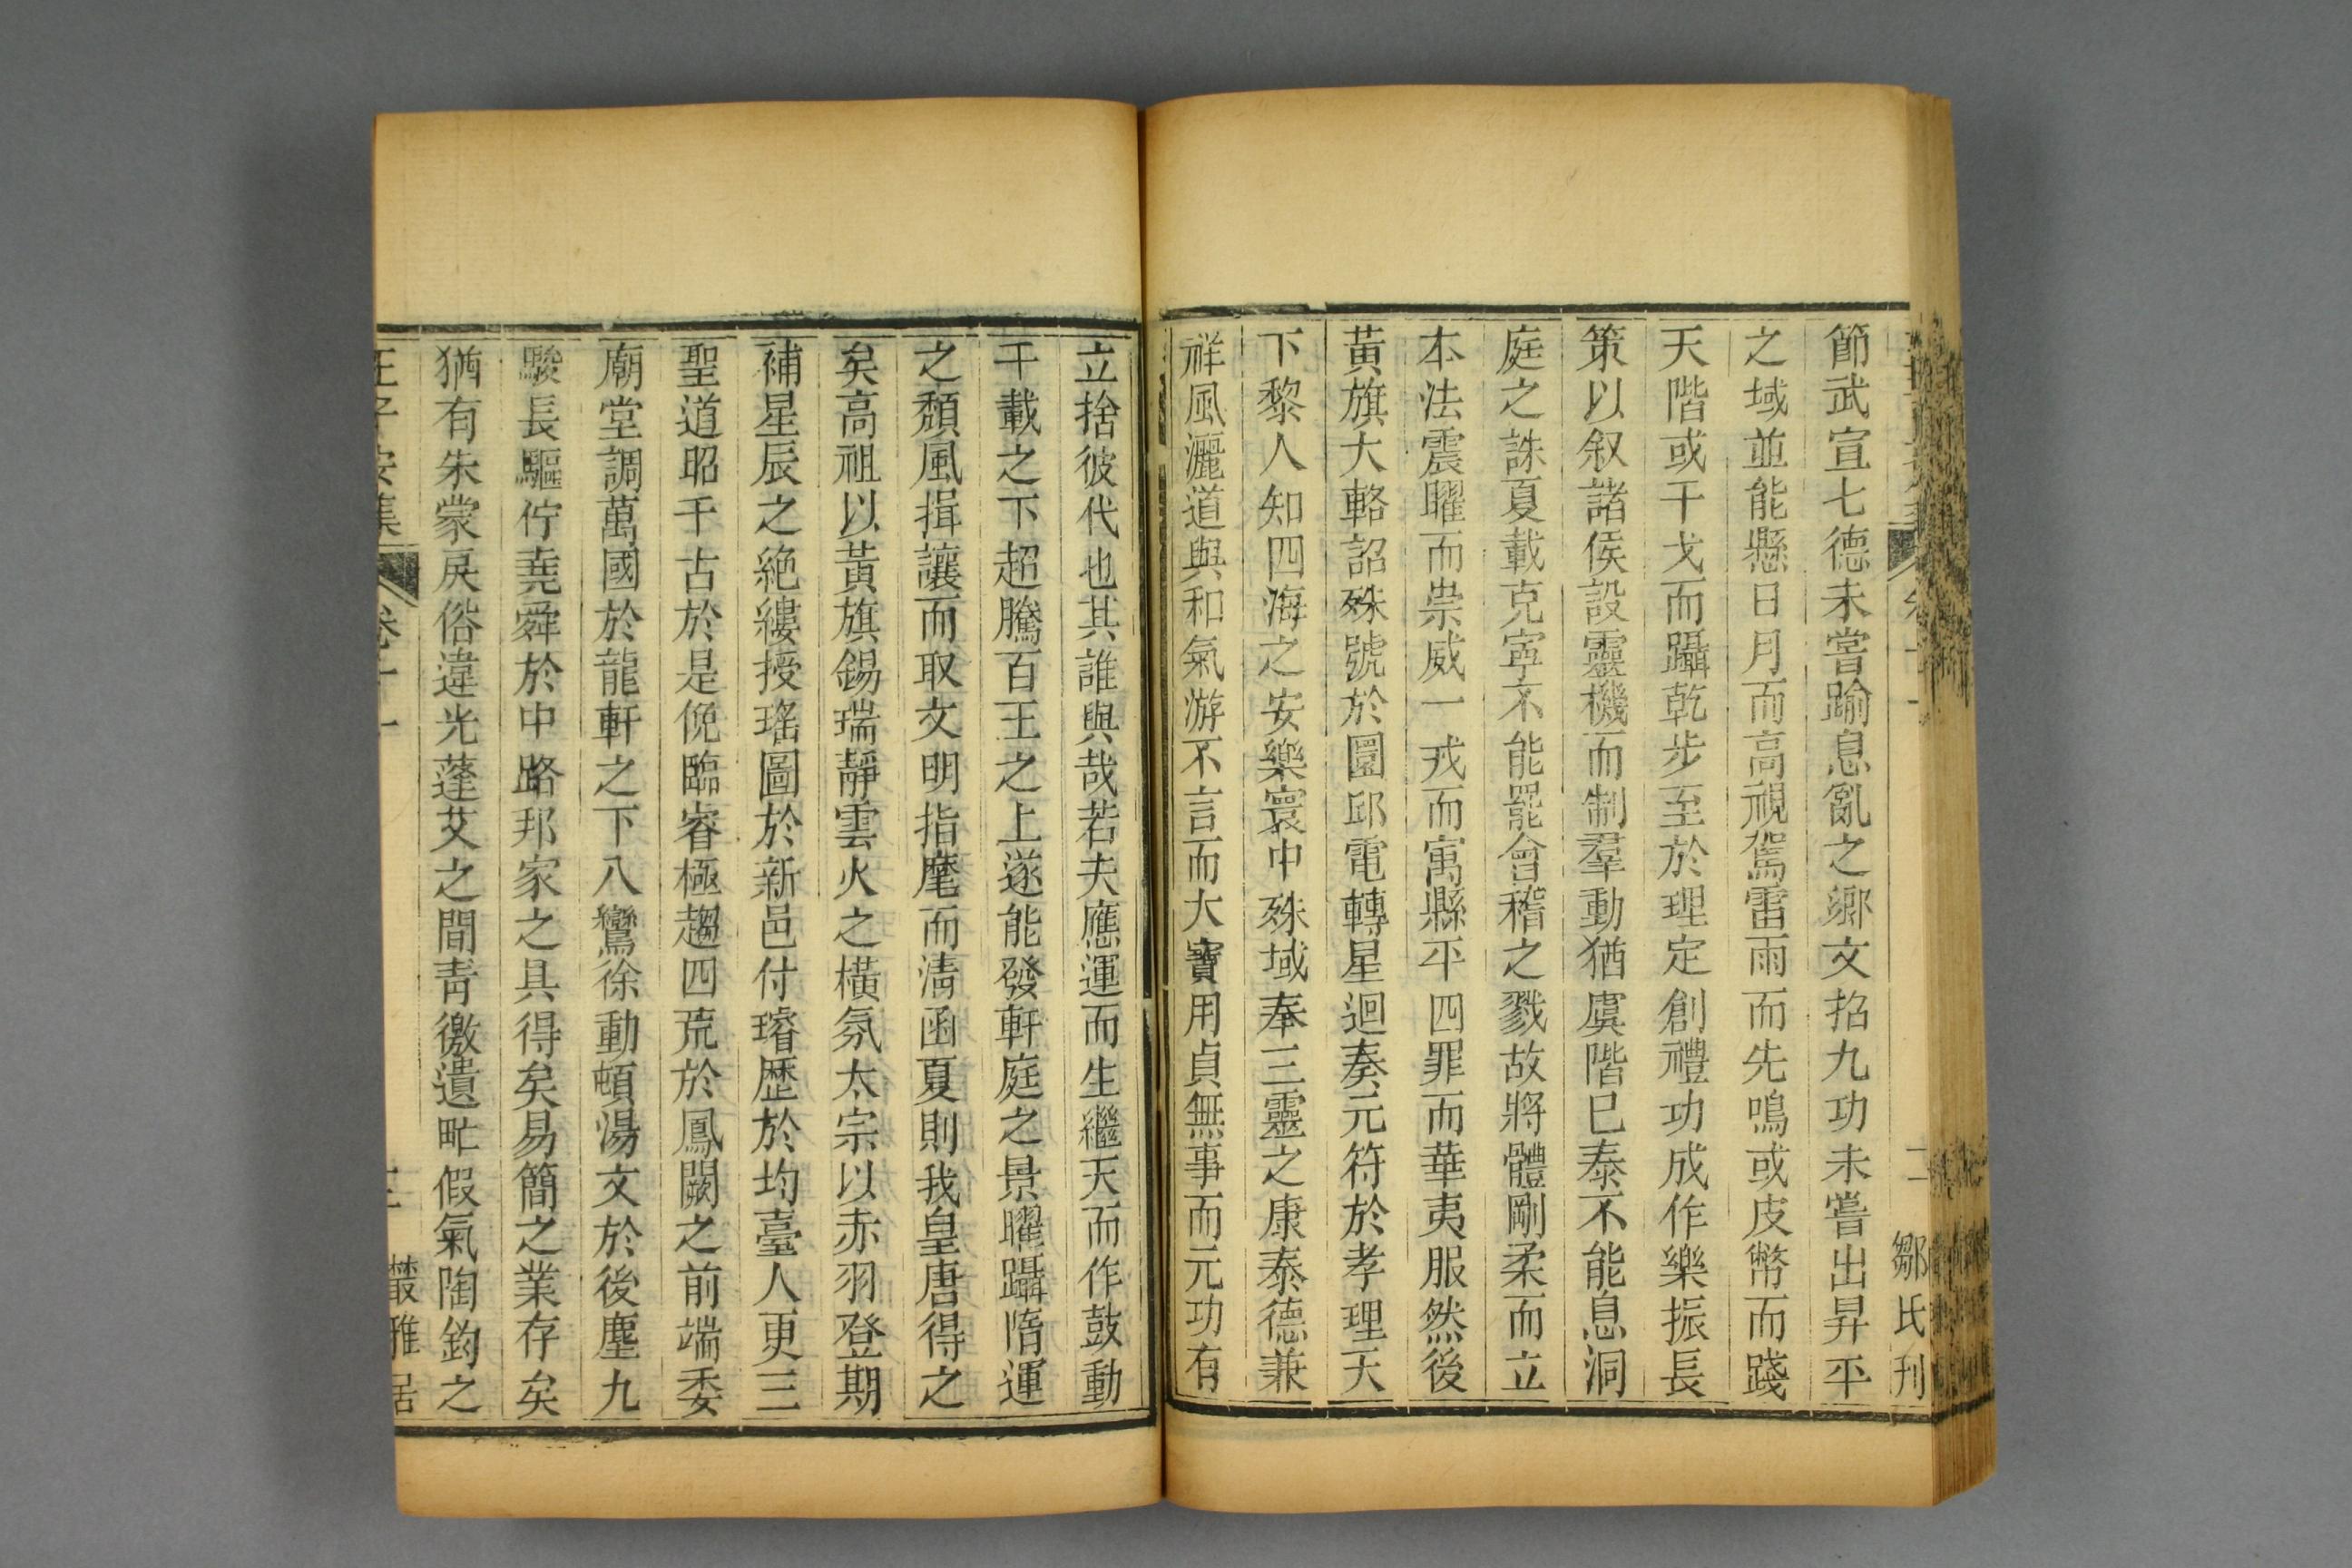 節武宣七德未嘗踰息亂之鄉文招九功未嘗出昇平
之域並能懸日月而高視駕雷雨而先鳴或皮幣而踐
天階或干戈而躡乾步至於理定創禮功成作樂振長
策以叙諸侯設靈機而制羣動猶虞階已泰不能息洞
庭之誅夏載克寧不能罷會稽之戮故將體剛柔而立
本法震曜而崇威一戎而寓縣平四罪而華夷服然後
黃旗大輅詔殊號於圜邱電轉星迴奏元符於孝理天
下黎人知四海之安樂寰中殊域奉三靈之康泰德兼
祥風灑道與和氣游不言而大寶用貞無事而元功有
二
鄒氏刊
立捨彼代也其誰與哉若夫應運而生繼天而作鼓動
千載之下超騰百王之上遂能發軒庭之景曜躡隋運
之頹風揖讓而取文明指麾而淸函夏則我皇唐得之
矣高祖以黃旗錫瑞靜雲火之橫氛太宗以赤羽登期
補星辰之絶縷授瑤圖於新邑付璿歷於均臺人更三
聖道昭千古於是俛臨睿極趨四荒於鳳闕之前端委
廟堂調萬國於龍軒之下八鸞徐動頓湯文於後塵九
駿長驅佇堯舜於中路邦家之具得矣易簡之業存矣
猶有朱蒙戾俗違光蓬艾之間靑徼遺甿假氣陶鈞之
王子安集
卷十一
叢雅居